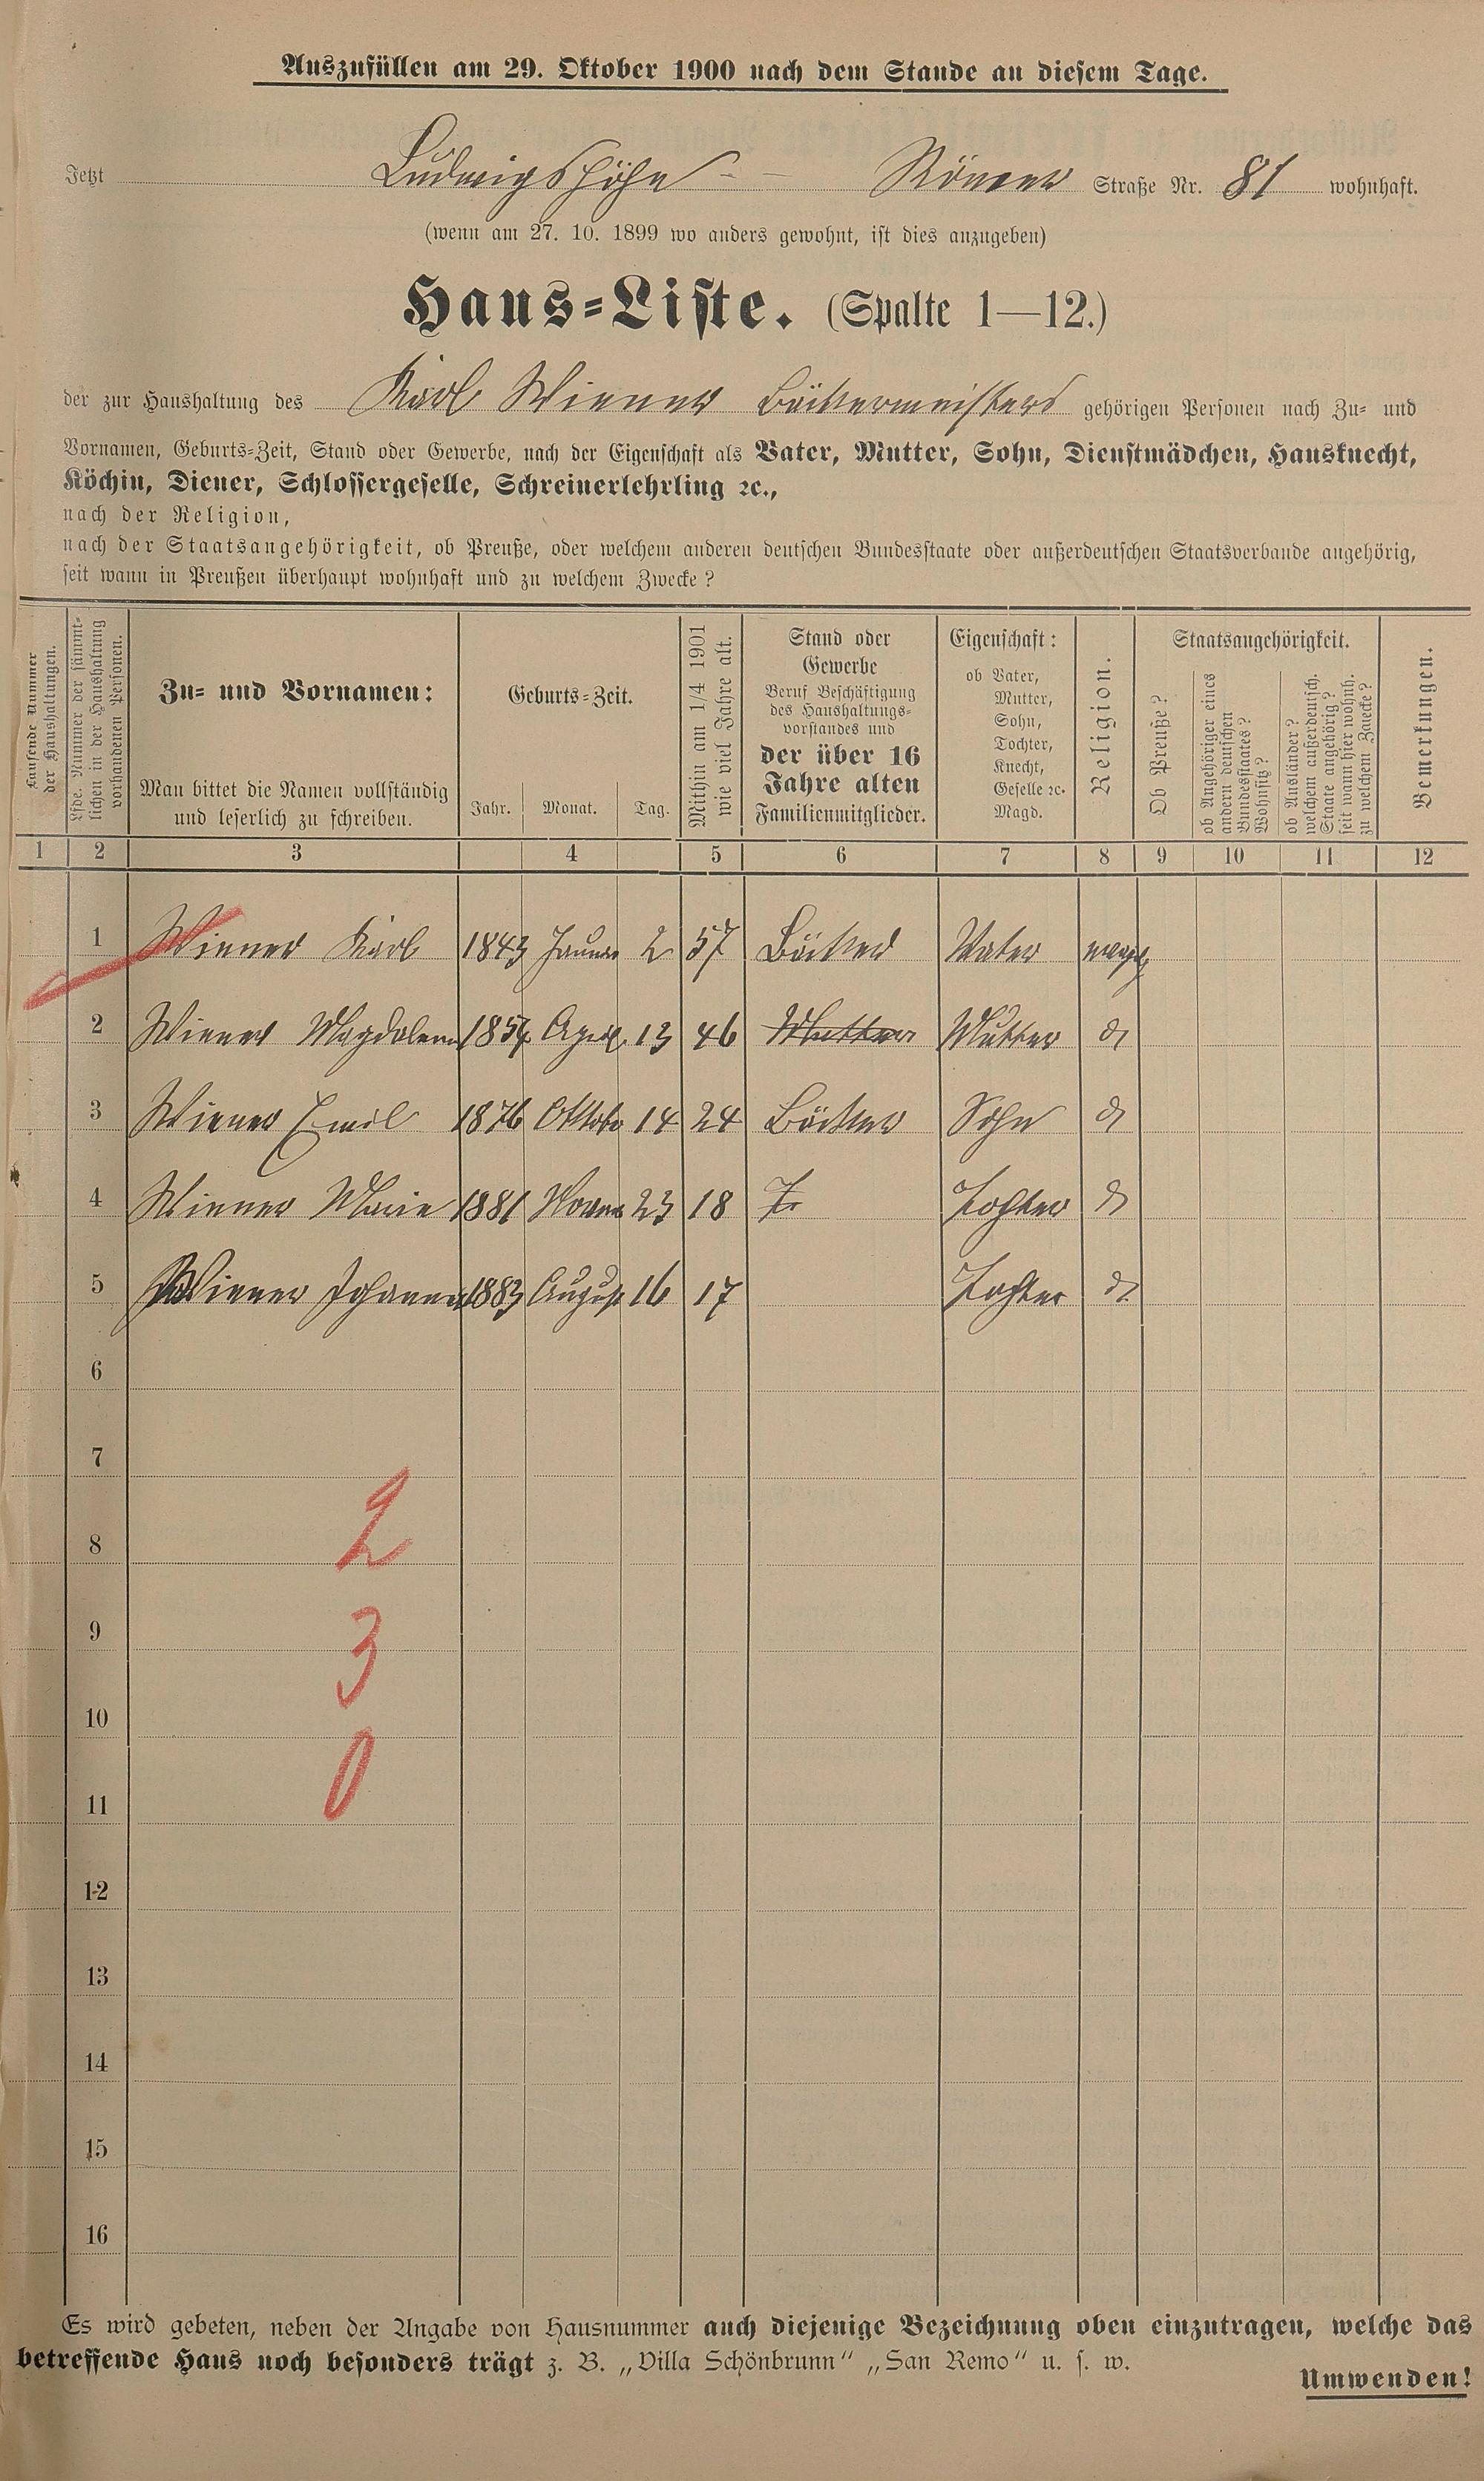 Auszufüllen am 29. Oktober 1900 nach dem Stande an diesem Tage.
Jetzt Ludwigshöhe - Römer Straße Nr. 81 wohnhaft.
(wenn am 27. 10. 1899 wo anders gewohnt, ist dies anzugeben)
Haus-Liste. (Spalte 1—12.)
der zur Haushaltung des Karl Wiener Bäckermeisters gehörigen Personen nach Zu- und
Vornamen, Geburts-Zeit, Stand oder Gewerbe, nach der Eigenschaft als Vater, Mutter, Sohn, Dienstmädchen, Hausknecht,
Köchin, Diener, Schlossergeselle, Schreinerlehrling ꝛc.,
nach der Religion,
nach der Staatsangehörigkeit, ob Preuße, oder welchem anderen deutschen Bundesstaate oder außerdeutschen Staatsverbande angehörig,
seit wann in Preußen überhaupt wohnhaft und zu welchem Zwecke?
Laufende Nummer
der Haushaltungen.
Lfde. Nummer der sämmt-
lichen in der Haushaltung
vorhandenen Personen.
Zu- und Vornamen:
Man bittet die Namen vollständig
und leserlich zu schreiben.
Geburts-Zeit.
Jahr. Monat. Tag.
Mithin am 1/4 1901
wie viel Jahre alt.
Stand oder
Gewerbe
Beruf Beschäftigung
des Haushaltungs-
vorstandes und
der über 16
Jahre alten
Familienmitglieder.
Eigenschaft:
ob Vater,
Mutter,
Sohn,
Tochter,
Knecht,
Geselle ꝛc.
Magd.
Religion.
Staatsangehörigkeit.
Ob Preuße?
ob Angehöriger eines
andern deutschen
Bundesstaates?
Wohnsitz?
ob Ausländer?
welchem außerdeutsch.
Staate angehörig?
seit wann hier wohnh.
zu welchem Zwecke?
Bemerkungen.
1 2 3 4 5 6 7 8 9 10 11 12
1 Wiener Karl 1843 Januar 2 57 Bäcker Vater evangl
2 Wiener Magdalena 1854 April 13 46 Mutter Mutter d
3 Wiener Emil 1876 Oktobr 14 24 Bäcker Sohn d
4 Wiener Marie 1881 Novem 23 18 Tochter d
5 Wiener Johanna 1883 August 16 17 Tochter d
6
7
8 2
9 3
10
11 0
12
13
14
15
16
Es wird gebeten, neben der Angabe von Hausnummer auch diejenige Bezeichnung oben einzutragen, welche das
betreffende Haus noch besonders trägt z. B. „Villa Schönbrunn“ „San Remo“ u. s. w.
Umwenden!